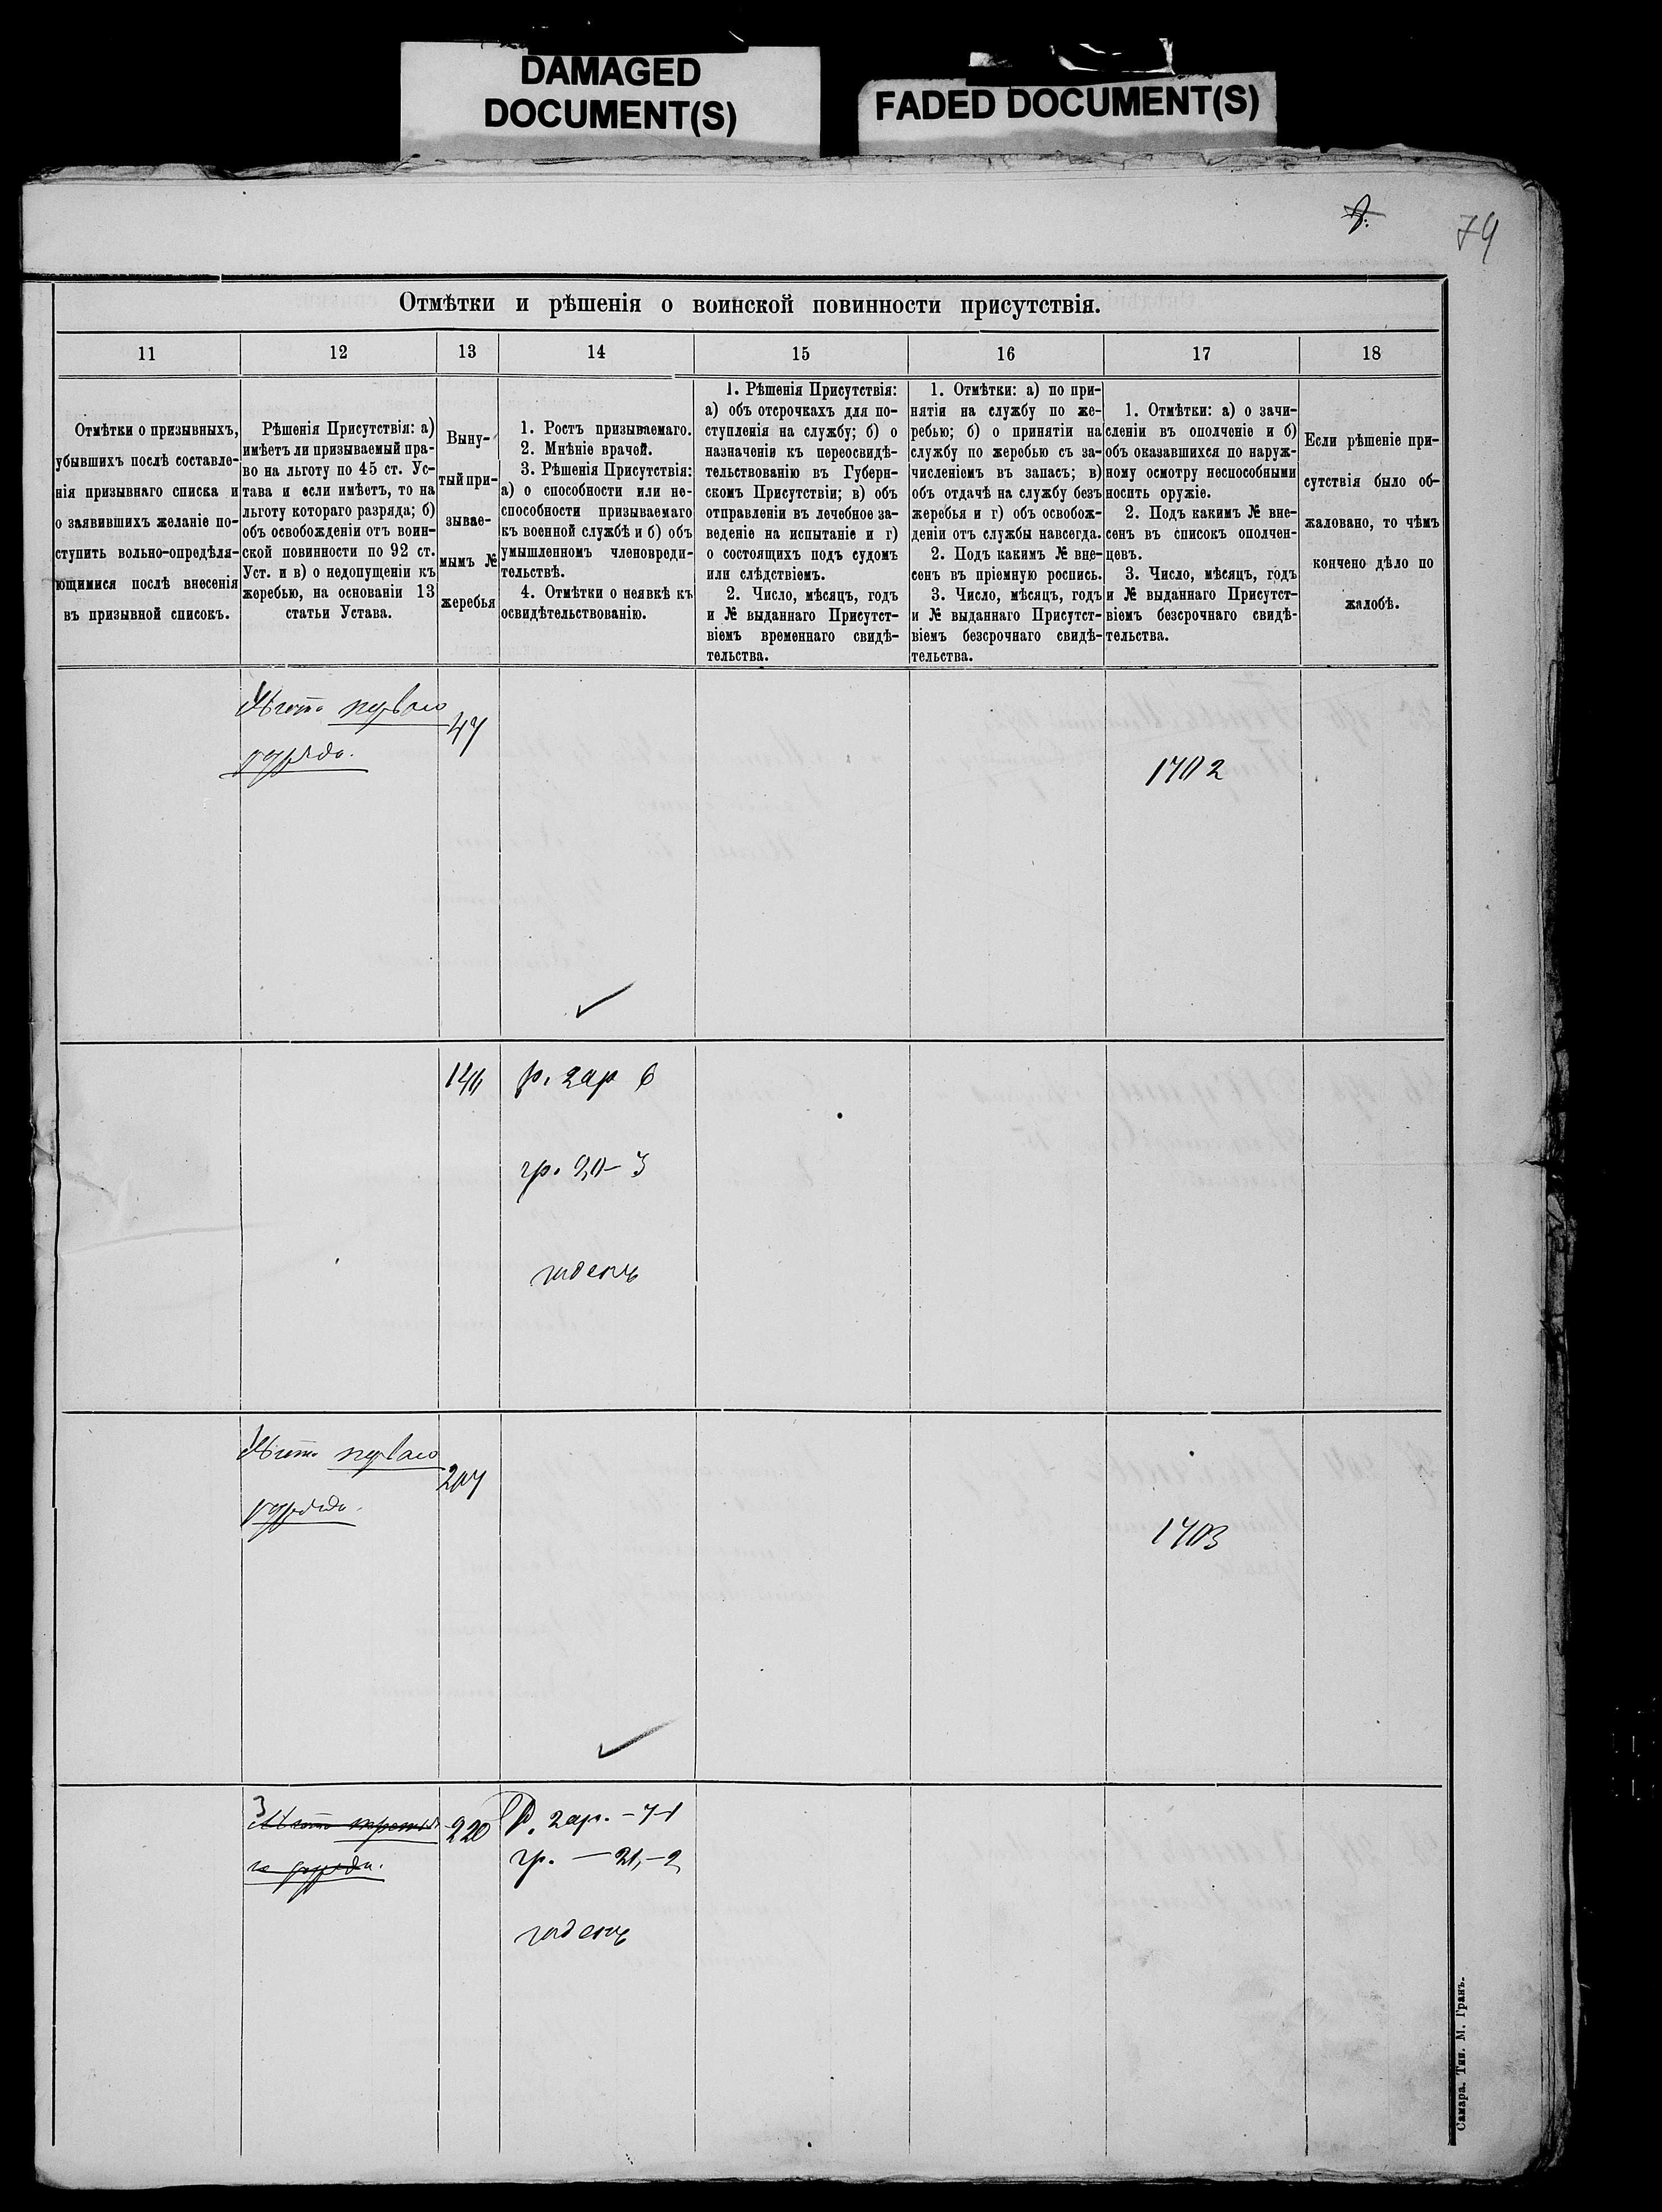 DAMAGED
DOCUMENT(S)
FADED DOCUMENT(S)
74
Отмѣтки и рѣшенія о воинской повинности присутствія.
11
12
13
14
15
16
17
18
Отмѣтки о призывныхъ,
убывшихъ послѣ составле-
нія призывнаго списка и
о заявившихъ желаніе по-
ступить вольно-опредѣля-
ющимися послѣ внесенія
въ призывной списокъ.
Рѣшенія Присутствія: а)
имѣетъ ли призываемый пра-
во на льготу по 45 ст. Ус-
тава и если имѣетъ, то на
льготу котораго разряда; б)
объ освобожденіи отъ воин-
ской повинности по 92 ст.
Уст. и в) о недопущеніи къ
жеребью, на основаніи 13
статьи Устава.
Выну-
тый при-
зывае-
мымъ №
жеребья
1. Ростъ призываемаго.
2. Мнѣніе врачей.
3. Рѣшенія Присутствія:
а) о способности или не-
способности призываемаго
къ военной службѣ и б) объ
умышленномъ членовреди-
тельствѣ.
4. Отмѣтки о неявкѣ къ
освидѣтельствованію.
1. Рѣшенія Присутствія:
а) объ отсрочкахъ для по-
ступленія на службу; б) о
назначеніи къ переосвидѣ-
тельствованію въ Губерн-
скомъ Присутствіи; в) объ
отправленіи въ лечебное за-
веденіе на испытаніе и г)
о состоящихъ подъ судомъ
или слѣдствіемъ.
2. Число, мѣсяцъ, годъ
и № выданнаго Присутст-
віемъ временнаго свидѣ-
тельства.
1. Отмѣтки: а) по при-
нятіи на службу по же-
ребью; б) о принятіи на
службу по жеребью съ за-
численіемъ въ запасъ; в)
объ отдачѣ на службу безъ
жеребья и г) объ освобож-
деніи отъ службы навсегда.
2. Подъ какимъ № вне-
сенъ въ пріемную роспись.
3. Число, мѣсяцъ, годъ
и № выданнаго Присутст-
віемъ безсрочнаго свидѣ-
тельства.
1. Отмѣтки: а) о зачи-
сленіи въ ополченіе и б)
объ оказавшихся по наруж-
ному осмотру неспособными
носить оружіе.
2. Подъ какимъ № вне-
сенъ въ списокъ ополчен-
цевъ.
3. Число, мѣсяцъ, годъ
и № выданнаго Присутст-
віемъ безсрочнаго свидѣ-
тельства.
Если рѣшеніе при-
сутствія было об-
жаловано, то чѣмъ
кончено дѣло по
жалобѣ.
Льгота перваго
разряда.
47
1702
р. 2 ар 6
гр. 20-3
годенъ
Льгота перваго
разряда.
207
1703
3
Льгота третья
го разряда.
220
Р. 2 ар. - 7-1
гр. - 21,-2
годенъ
Самара. Тип. М. Гранъ.